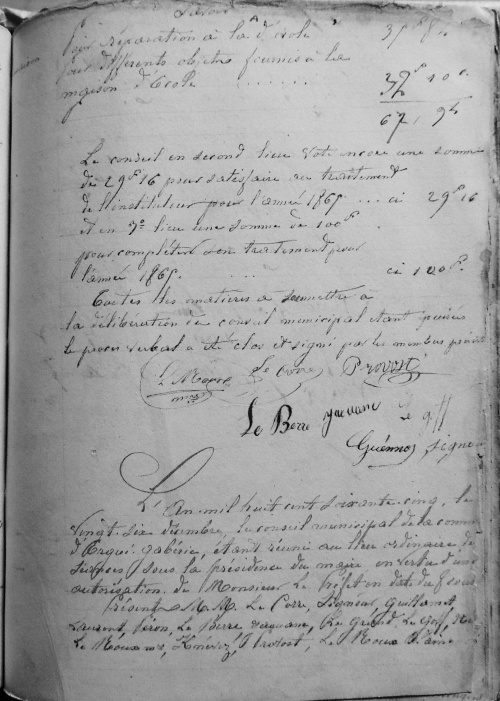 Savoir
Pour réparation à la d. école 35f 8
pour différents objets fournis à la
maison d'école ...... 32f 10c
67, 94
Le conseil en second lieu vote encore une somme
de 29f 16 pour satisfaire au traitement
de l'instituteur pour l'année 1865 ... ci 29f 16
et en 3e lieu une somme de 100f
pour compléter son traitement pour
l'année 1865. ... ci 100f.
Toutes les matières à soumettre à
la délibération du conseil municipal étant épuisées
le procès verbal a été clos et signé par les membres présents
Le Corre Provost
Le Berre yves Le Goff
Guennou, signeur
L'An mil huit cent soixante cinq, le
vingt six décembre, le conseil municipal de la commune
d'Ergué-Gabéric, étant réuni au lieu ordinaire de
sur la présidence du maire en vertu d'une
autorisation de Monsieur le préfet en date du 8
Présents M.M. Le Corre, Signour, Guillamet,
Laurent, Féron, Le Berre, Le Grand, Le Goff,
Provost, Le Roux